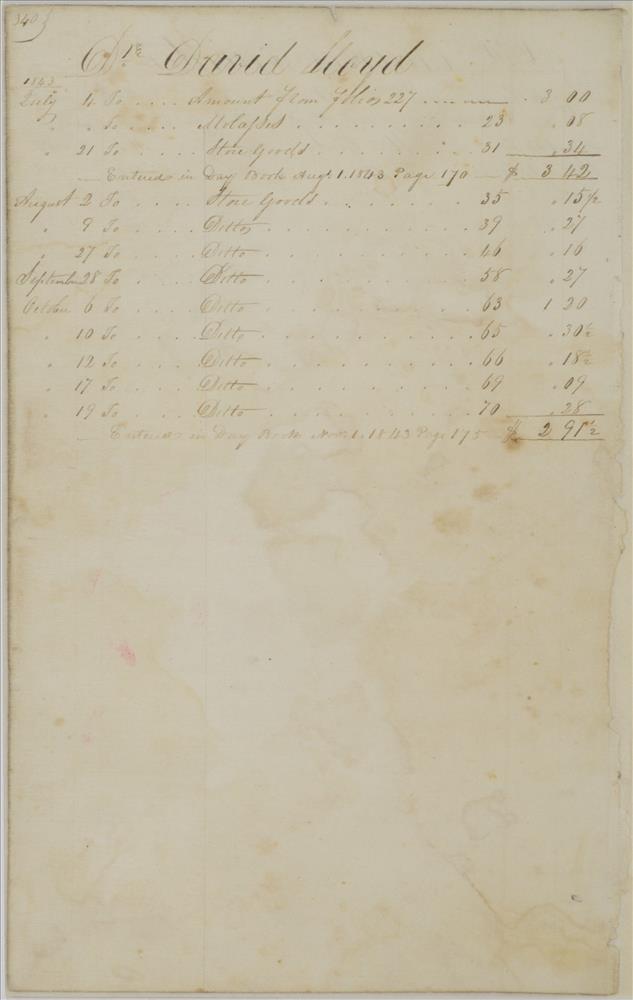 340
Dr. David Lloyd
1843
July 4 To .... Amount from folio 227 .... 3 00
" " To .... Molasses ......... 23 .08
" 21 To .... Store Goods ...... 31 .34
Entered in Day Book Augt 1. 1843 Page 170 $ 3 42
August 2 To .... Store Goods ...... 35 .15 1/2
" 9 To .... Ditto ......... 39 .27
" 27 To .... Ditto ......... 46 .16
September 28 To .... Ditto ......... 58 .27
October 6 To .... Ditto ......... 63 1 20
" 10 To .... Ditto ......... 65 .30 1/2
" 12 To .... Ditto ......... 66 .18 1/2
" 17 To .... Ditto ......... 69 .09
" 19 To .... Ditto ......... 70 .28
Entered in Day Book Novr 1. 1843 Page 175 $ 2 91 1/2